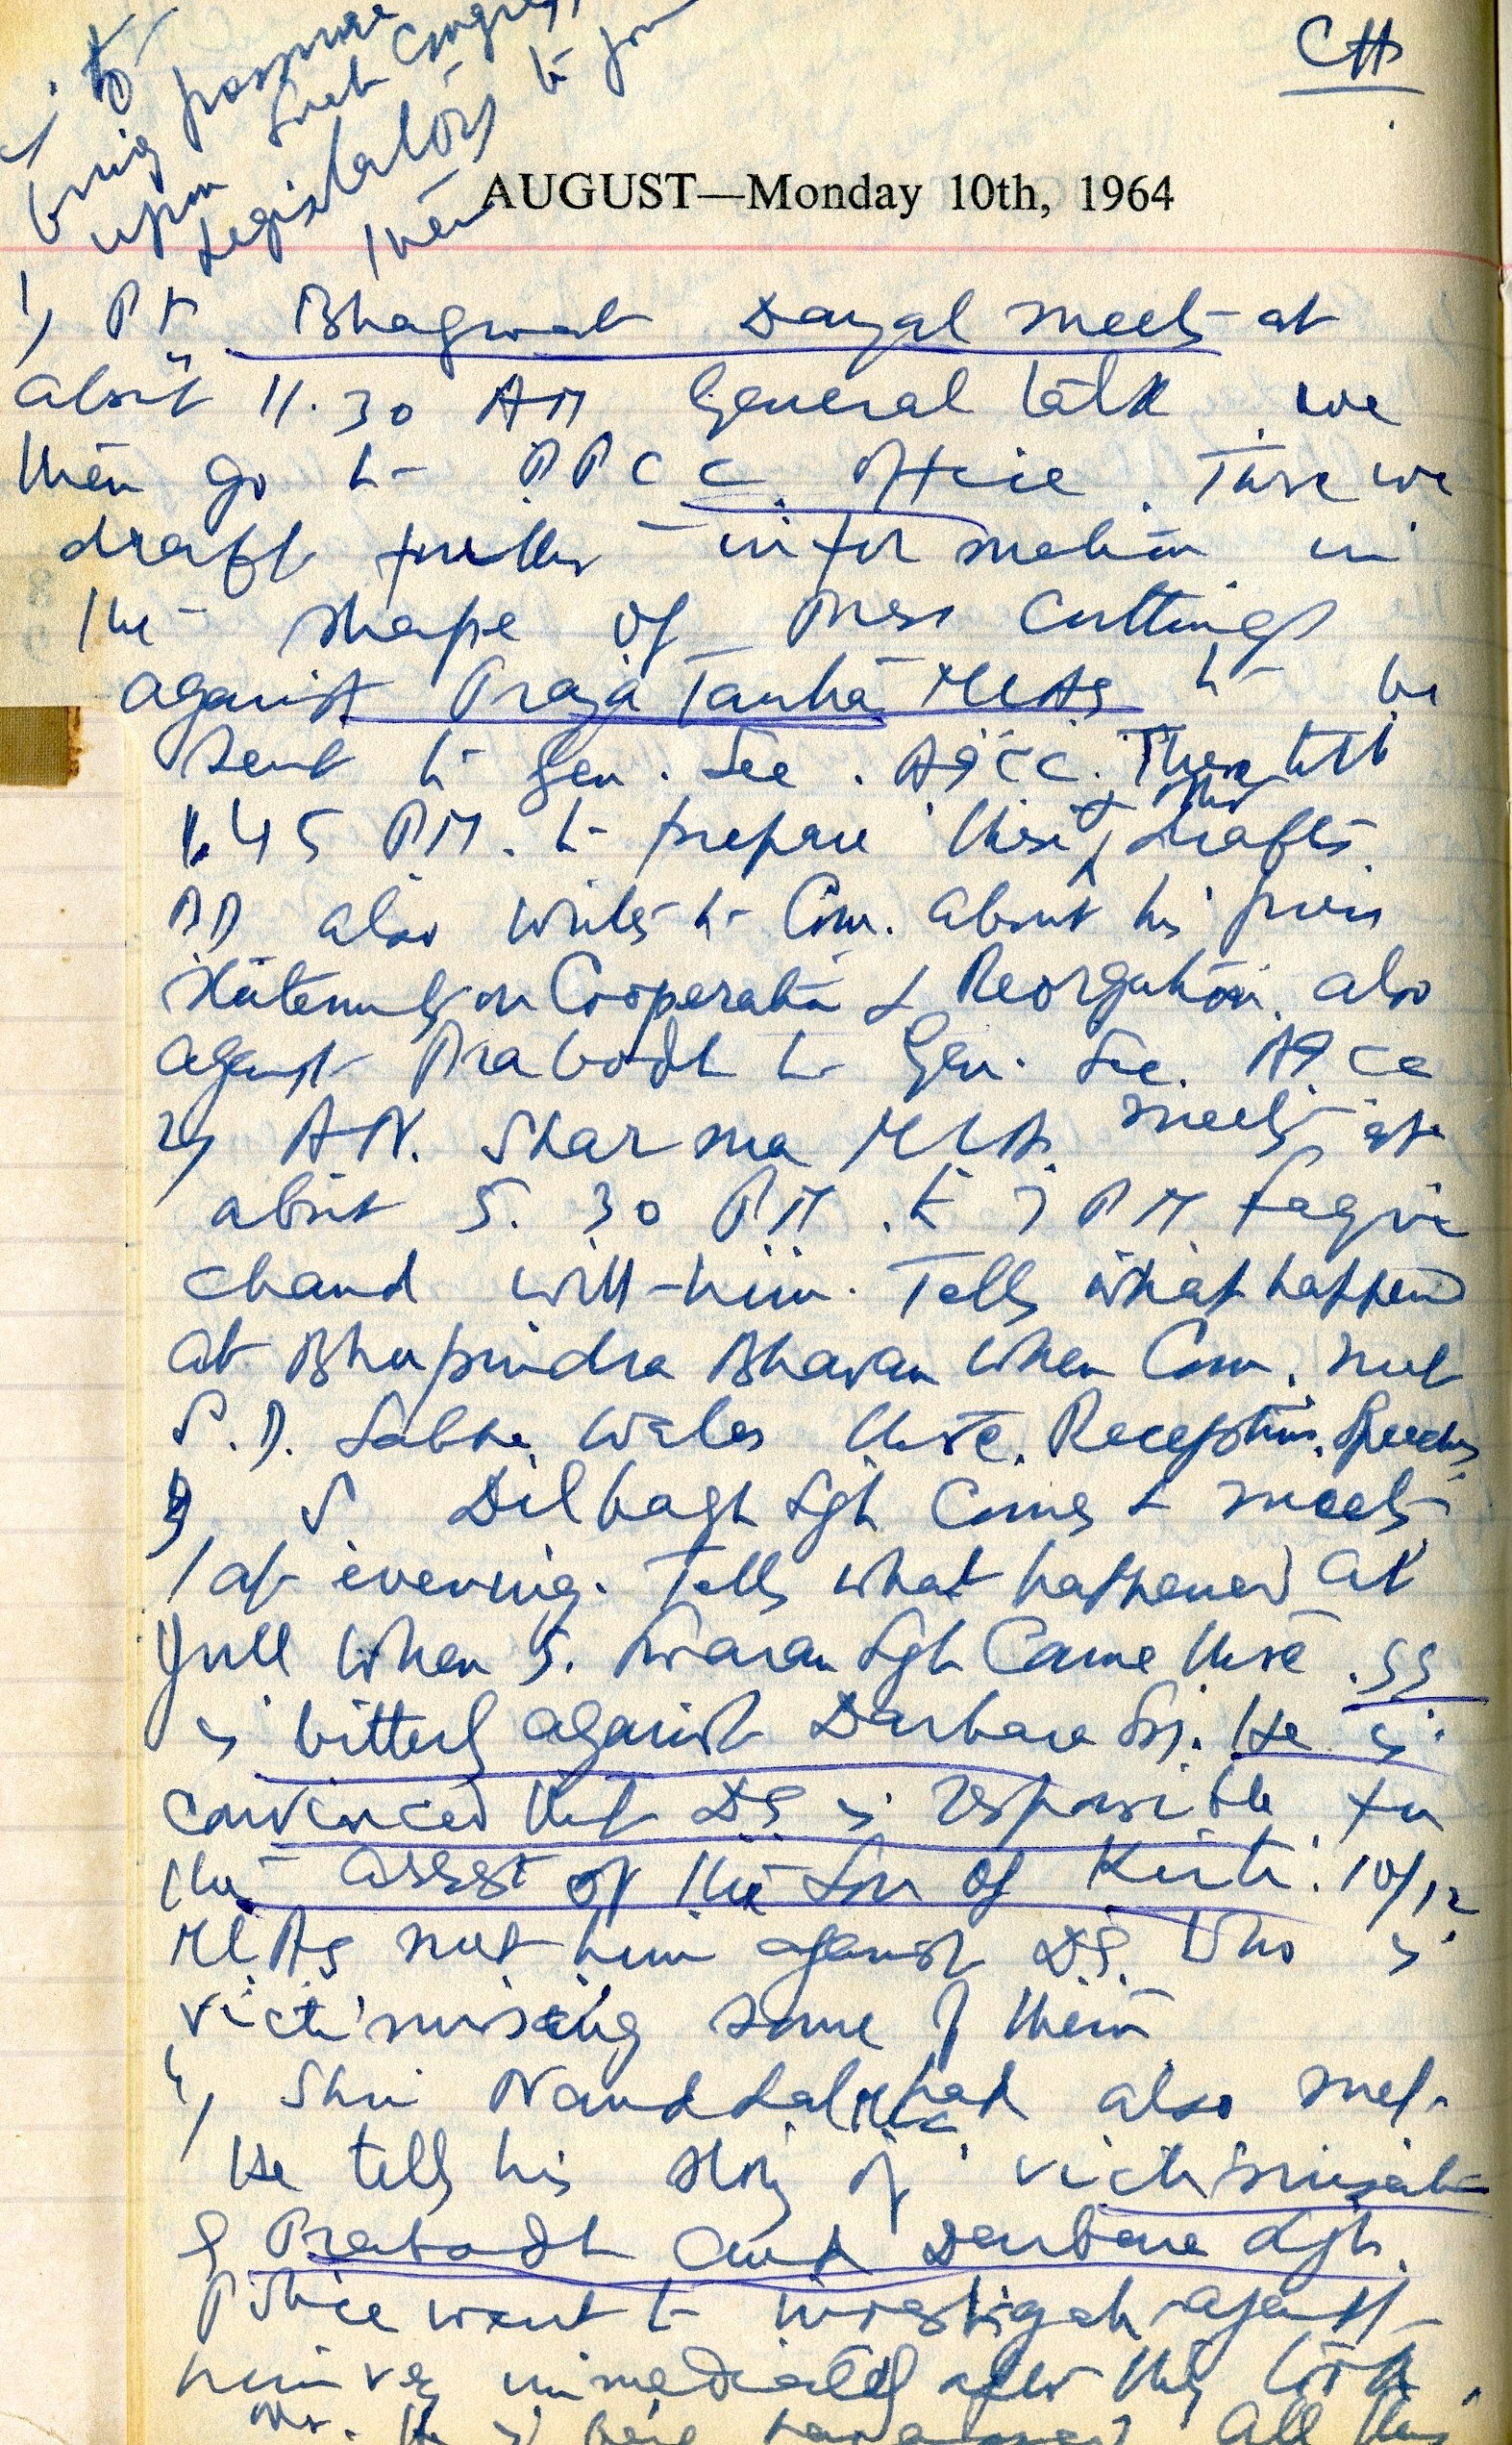 to
bring pressure
upon such Congress
Legislators to join
them
CH
AUGUST—Monday 10th, 1964
1) Pt. Bhagwat Dayal meets at
about 11.30 AM General talk we
then go to PPCC. Office. There we
draft further information in
the shape of Press Cuttings
against Praja Tantra MLAs to be
sent to Gen. Sec. AICC. There till
1.45 PM. to prepare these & other drafts.
also writes to Com. about his press
statements on Cooperation & Reorgation. also
against Prabodh to Gen. Sec. AICC
2) A.N. Sharma MLA. meets at
about 5.30 PM. to 7 PM
Chand with him. Tells what happened
at Bhupindra Bhavan when Com. met
there. Reception. Speeches
3) S Dilbagh Sgh Comes & meets
at evening. Tells what happened at
Jull when S. Swaran Sgh Came there. SS
is bitterly against Darbara Sgh. He is
convinced that DS is responsible for
the arrest of the Son of Kirti. 10/12
MLAs met him against DS. Who is
victimising some of them
4) Shri Nand Lal MLA had also met.
He tells his story of victimisation
of Prabodh and Darbara Sgh.
Police want to investigate against
him very immediately after they took
over. He is being harassed. All this